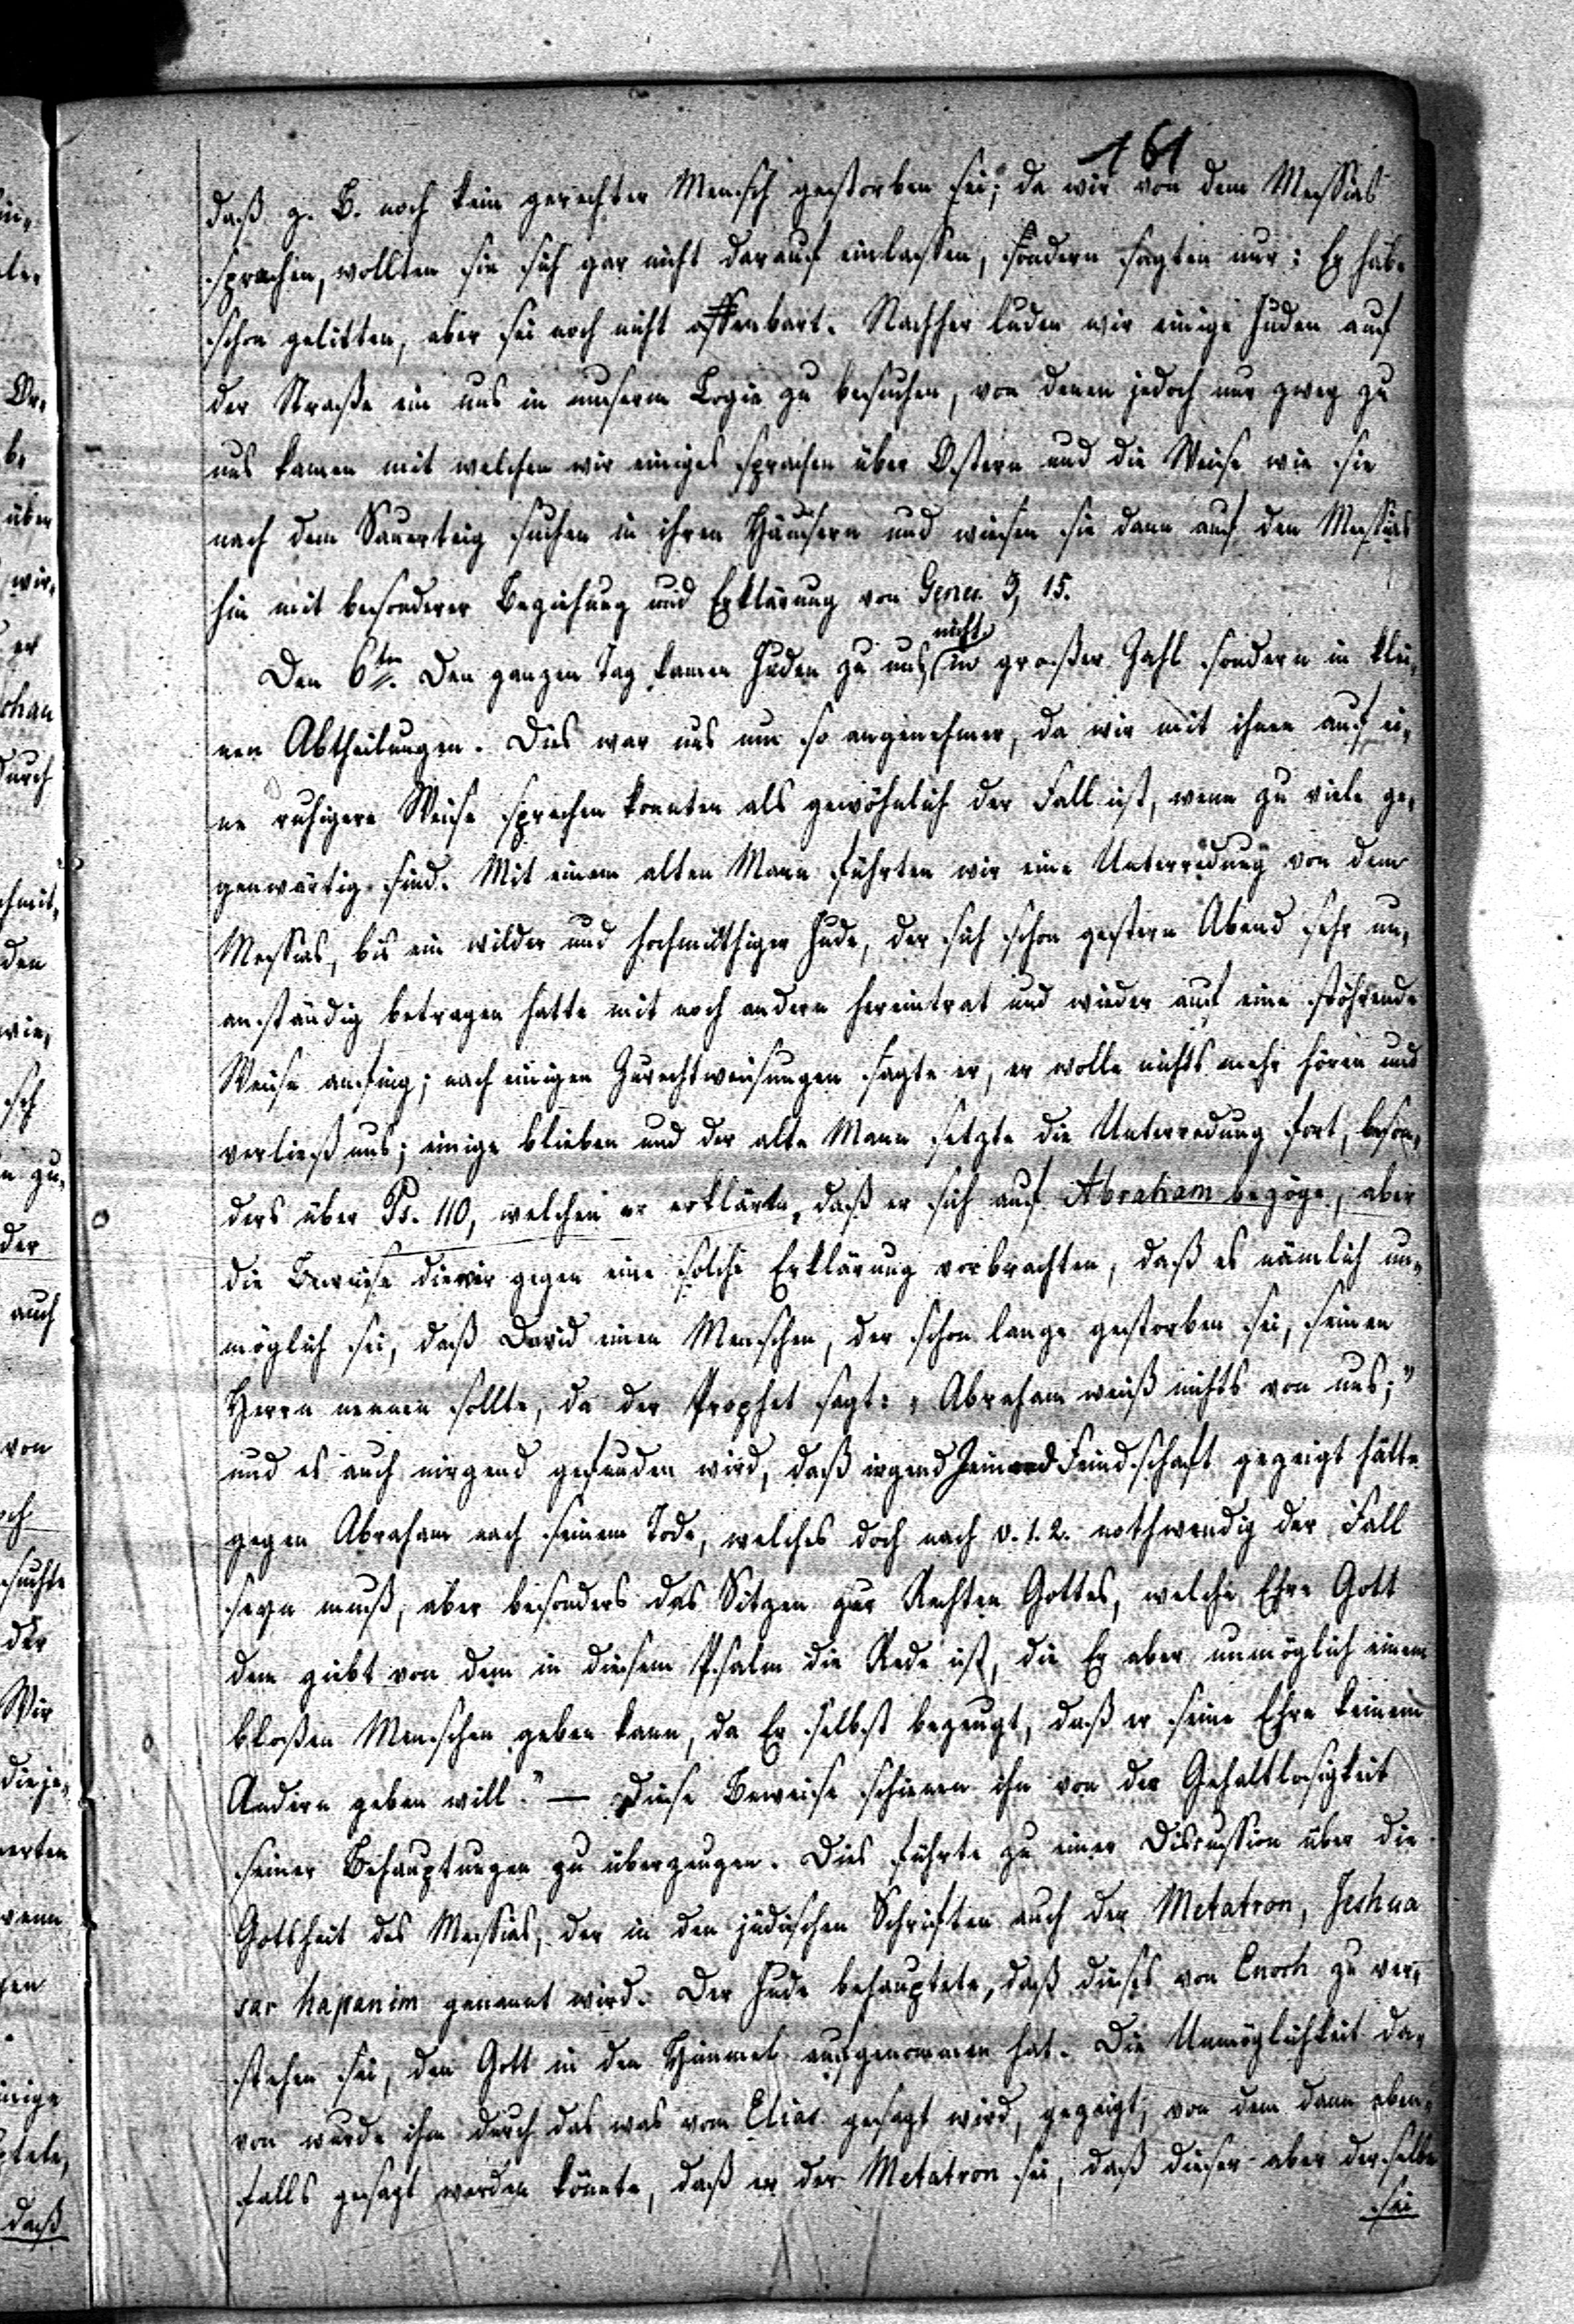 161
daß z. B. noch kein gerechter Mensch gestorben sei; da wir von dem Messias
sprachen, wollten sie sich gar nicht darauf einlassen, sondern sagten nur: Er habe
schon gelitten, aber sei noch nicht offenbart. Nachher luden wir einige Juden auf
der Straße ein uns in unserm Logie zu besuchen, von denen jedoch nur zwey zu
uns kamen mit welchen wir einiges sprachen über Ostern und die Weise wie sie
nach dem Sauerteig suchen in ihren Häusern und wiesen sie dann auf den Messias
hin mit besonderer Beziehung und Erklärung von Genes. 3, 15.
Den 6ten. Den ganzen Tag kamen Juden zu uns nicht in großer Zahl sondern in klei,
nen Abtheilungen. Dies war uns um so angenehmer, da wir mit ihnen auf ei,
ne ruhigere Weise sprechen konnten als gewöhnlich der Fall ist, wenn zu viele ge,
genwärtig sind. Mit einem alten Mann führten wir eine Unterredung von dem
Messias, bis ein wilder und hochmüthiger Jude, der sich schon gestern Abend sehr un,
anständig betragen hatte mit noch andern hereintrat und wieder auf eine störende
Weise anfing; nach einigen Zurechtweisungen sagte er, er wolle nichts mehr hören und
verließ uns; einige blieben und der alte Mann setzte die Unterredung fort, beson,
ders über Ps. 110, welchen er erklärte, daß er sich auf Abraham bezöge, aber
die Beweise die wir gegen eine solche Erklärung vorbrachten, daß es nämlich un,
möglich sei, daß David einen Menschen, der schon lange gestorben sei, seinen
Herrn nennen sollte, da der Prophet sagt: „Abraham weiß nichts von uns;"
und es auch nirgend gefunden wird, daß irgend Jemand Feindschaft gezeigt hätte
gegen Abraham nach seinem Tode, welches doch nach v. 1. 2. nothwendig der Fall
seyn muß, aber besonders das Sitzen zur Rechten Gottes, welche Ehre Gott
dem giebt von dem in diesem Psalm die Rede ist, die Er aber unmöglich einem
bloßen Menschen geben kann, da Er selbst bezeugt, daß er seine Ehre keinem
Andern geben will." — Diese Beweise schienen ihn von der Gehaltlosigkeit
seiner Behauptungen zu überzeugen. Dies führte zu einer Discussion über die
Gottheit des Messias, der in den jüdischen Schriften auch der Metatron, Jeshua
sar hapanim genannt wird. Der Jude behauptete, daß dieses von Enoch zu ver,
stehen sei, den Gott in den Himmel aufgenommen hat. Die Unmöglichkeit da,
von wurde ihm durch das was vom Elias gesagt wird, gezeigt, von dem dann eben,
falls gesagt werden könnte, daß er der Metatron sei, daß dieser aber derselbe
sei